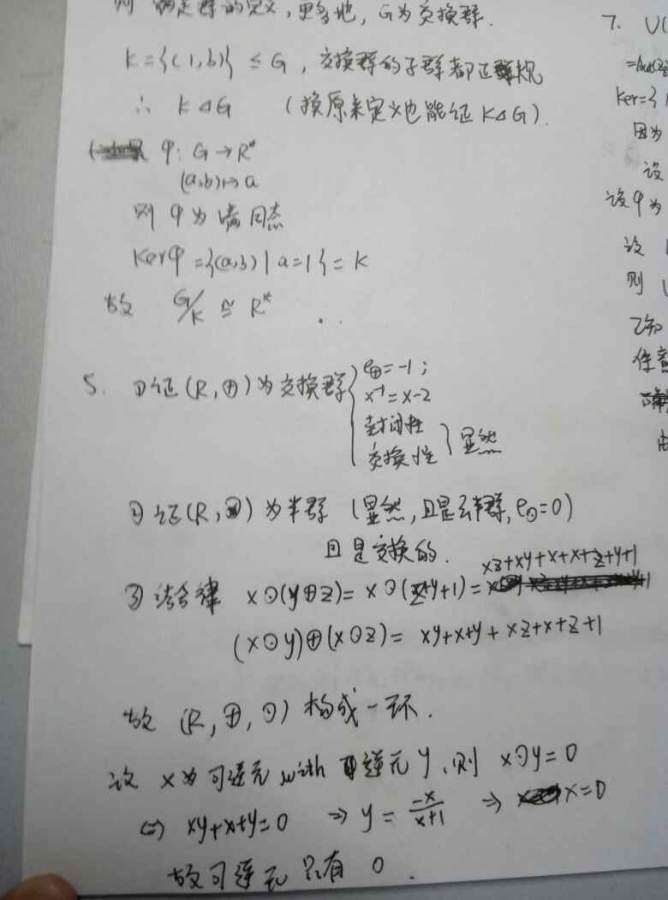 则 满足群的定义,更多地,G为交换群.
K={(1,b)} ≤ G,交换群的子群都正规
∴ K⊲G (按原来定义也能证 K⊲G).
φ: G→R*
(a,b)↦a
则 φ为满同态
Kerφ={(a,b)|a=1}=K
故 G/K ≅ R*
5. ①证(R,⊕)为交换群 { e⊕=-1;
x⁻¹=x-2
封闭性
交换性 } 显然
①证(R,⊙)为半群 (显然,且是幺半群,e⊙=0)
且是交换的.
xz+xy+x+x+z+y+1
③ 结合律 x⊙(y⊕z)=x⊙(z+y+1)=
(x⊙y)⊕(x⊙z)= xy+x+y+xz+x+z+1
故 (R,⊕,⊙) 构成一环.
设 x为可逆元 with 逆元 y,则 x⊙y=0
⇔ xy+x+y=0 ⇒ y=-x/x+1 ⇒ x=0
故可逆元 只有 0.
7. U(
Ker={
因为
设
设φ为
设
则
任意